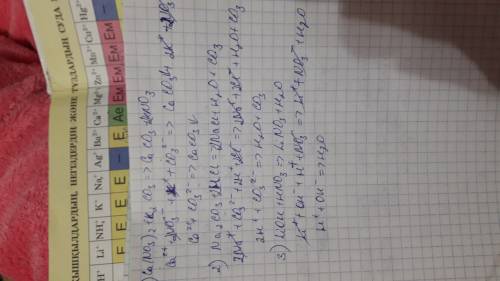 ҚЫШҚЫЛДАРДЫҢ, НЕГІЗДЕРДІҢ ЖӘНЕ ТҰЗДАРДЫҢ СУДА
H⁺ Li⁺ NH₄⁺ K⁺ Na⁺ Ag⁺ Ba²⁺ Ca²⁺ Mg²⁺ Zn²⁺ Mn²⁺ Cu²⁺ Hg²⁺
E E E E – E Ае ЕМ ЕМ ЕМ ЕМ –
) Ca(NO₃)₂+K₂CO₃ => CaCO₃↓+2KNO₃
Ca²⁺+2NO₃⁻+2K⁺+CO₃²⁻ => CaCO₃↓+2K⁺+2NO₃⁻
Ca²⁺+CO₃²⁻ => CaCO₃↓
2) Na₂CO₃+2HCl => 2NaCl+H₂O+CO₃
2Na⁺+CO₃²⁻+2H⁺+2Cl⁻ => 2Na⁺+2Cl⁻+H₂O+CO₃
2H⁺+CO₃²⁻ => H₂O+CO₃
3) LiOH+HNO₃ => LiNO₃+H₂O
Li⁺+OH⁻+H⁺+NO₃⁻ => Li⁺+NO₃⁻+H₂O
H⁺+OH⁻ => H₂O